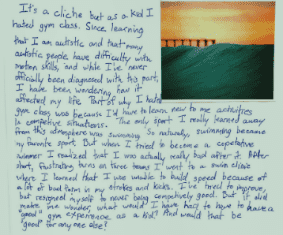 It's a cliche but as a kid I
hated gym class. Since learning
that I am autistic and that many
autistic people have difficulty with
motor skills, and while I've never
officially been diagnosed with this part,
I have been wondering how it
affected my life. Part of why I hated
gym class was because I'd have to learn new to me activities
in competitive situations. The only sport I really learned away
from this atmosphere was swimming. So naturally, swimming became
my favorite sport. But when I tried to become a competitive
swimmer I realized that I was actually really bad at it. After
short, frustrating turns on three teams I went to a swim clinic
where I learned that I was unable to build speed because of
a lot of bad form in my strokes and kicks. I've tried to improve,
but resigned myself to never being competitively good. But it did
make me wonder, what would I have had to have to have a
"good" gym experience as a kid? And would that be
"good" for anyone else?